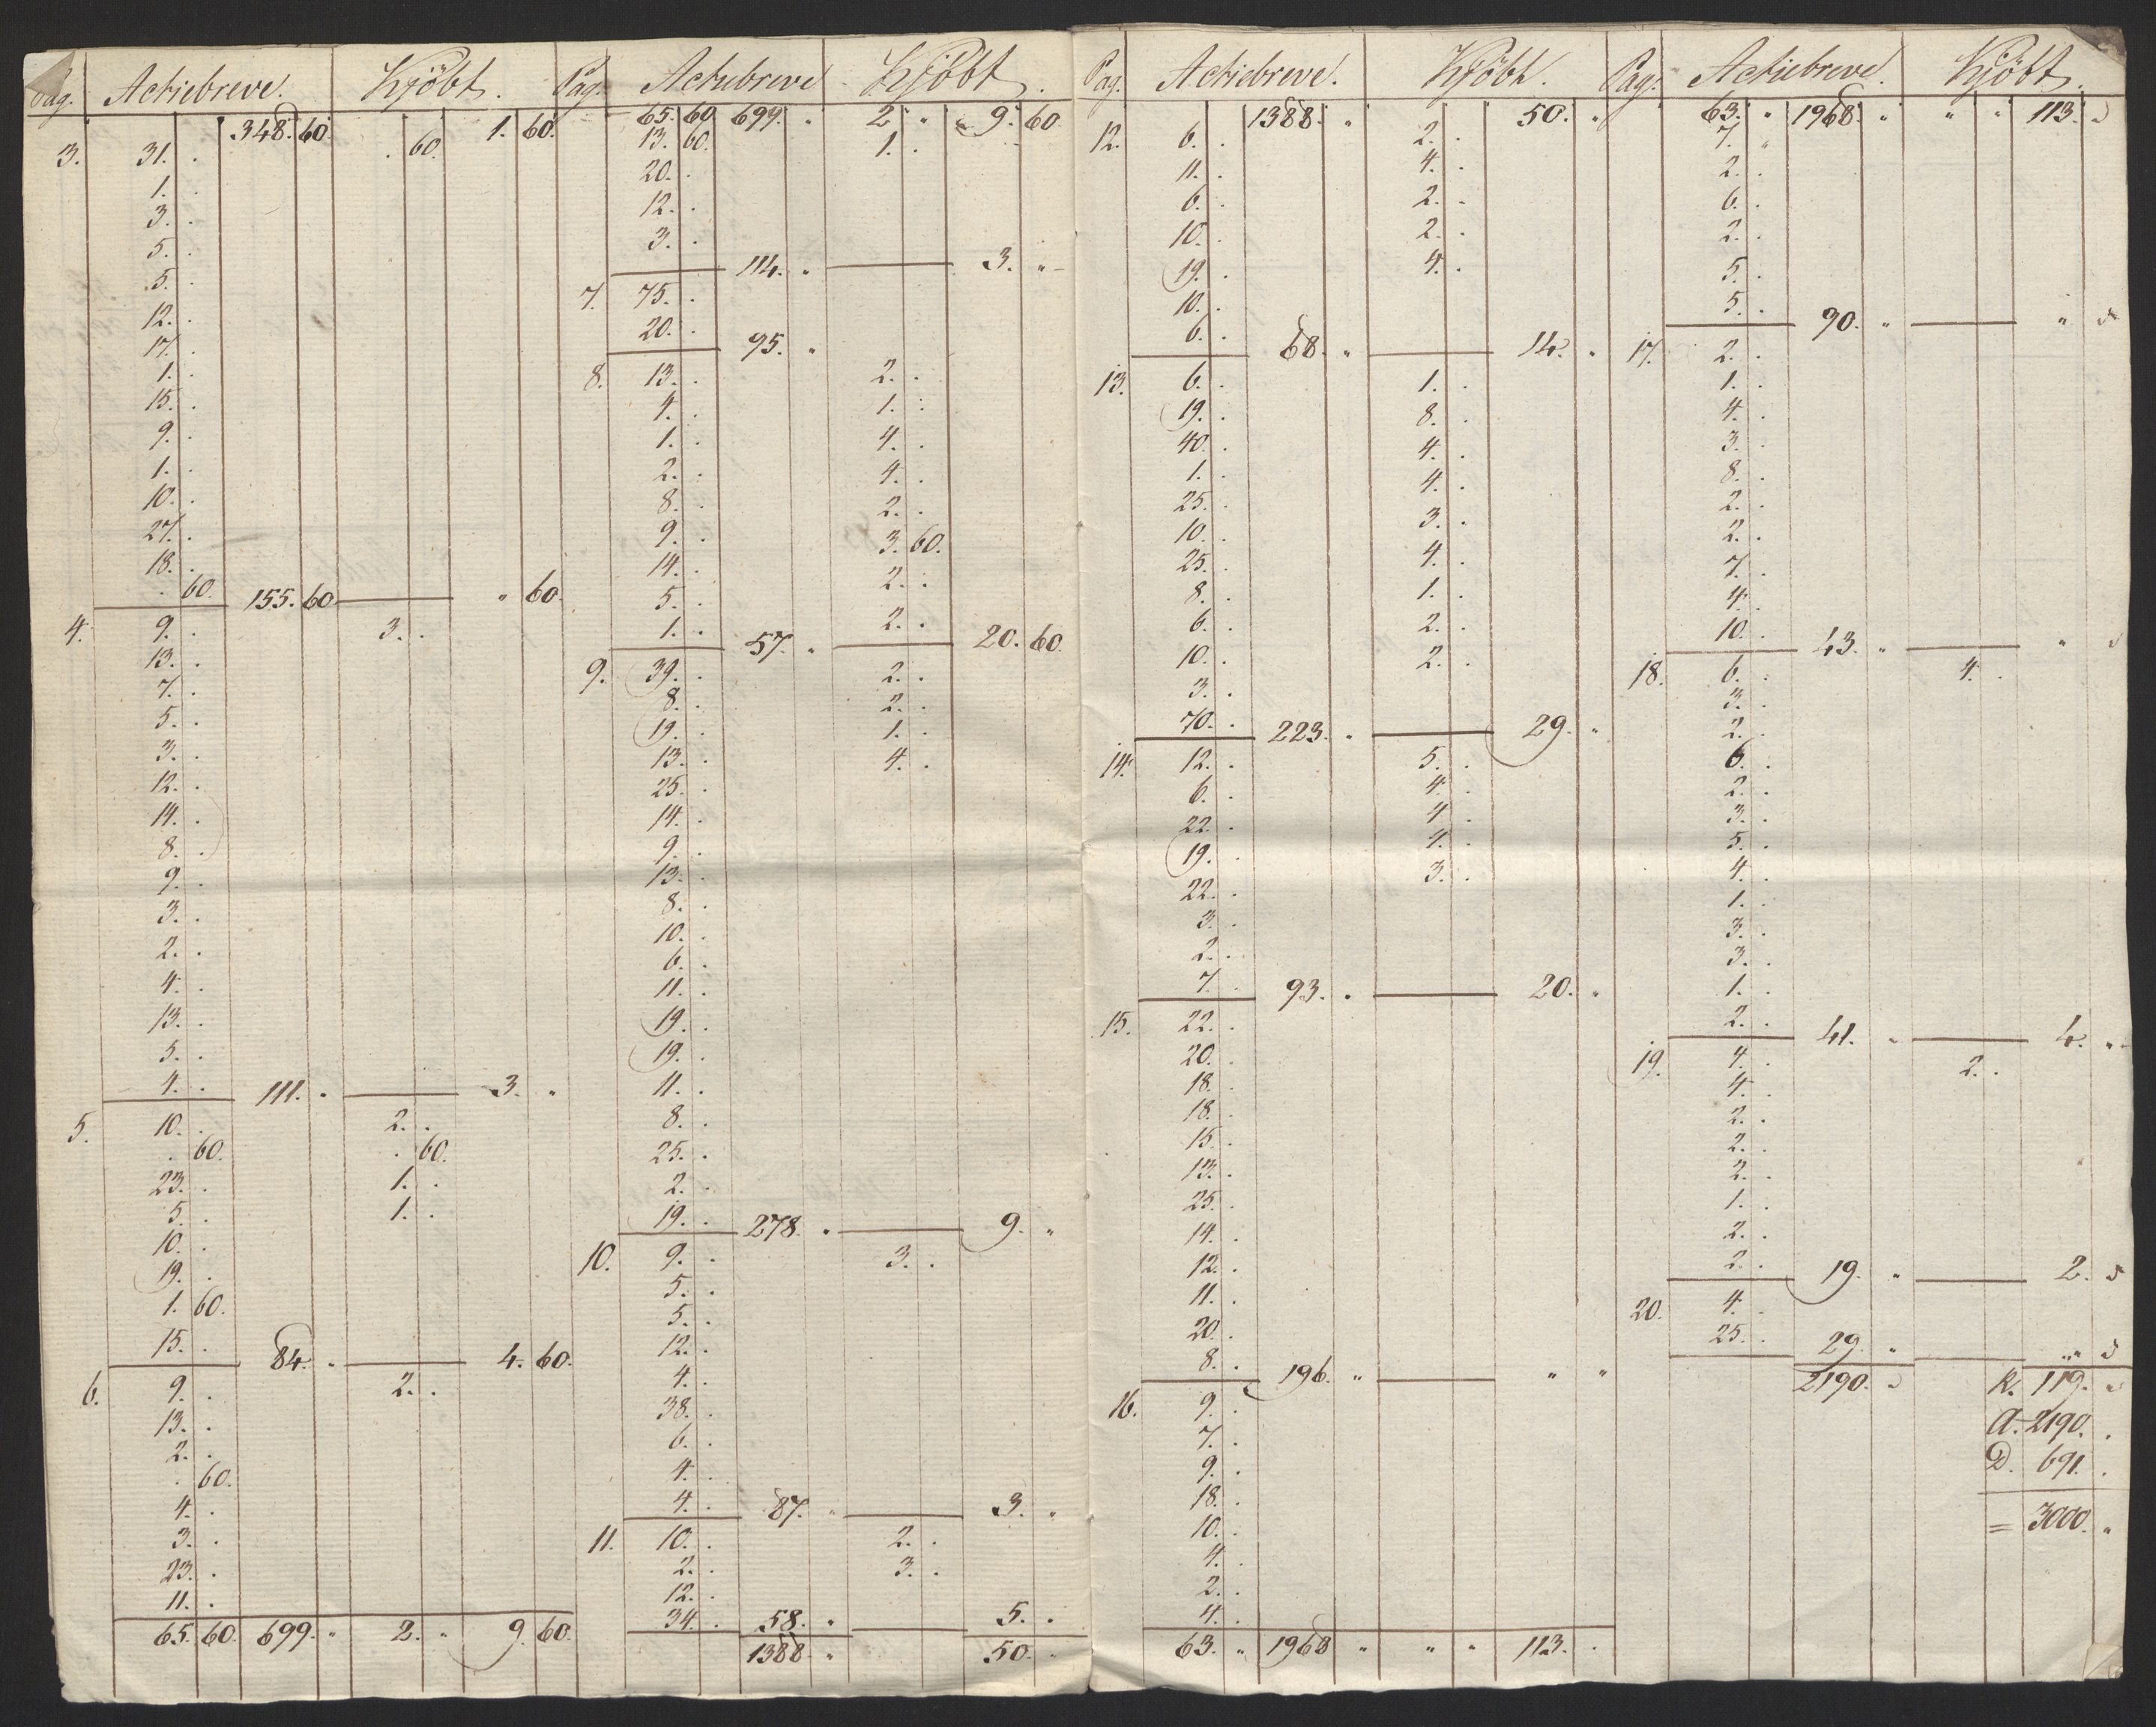 Pag. Actiebreve. Kjöbt.
348. 60 1. 60.
3. 31. . . 60.
1. .
3. .
5. .
5. .
12. .
17. .
1. .
15. .
9. .
1. .
10. .
27. .
18. .
. 60. 155. 60 " 60.
4. 9. . 3. .
13. .
7. .
5. .
3. .
12. .
14. .
8. .
9. .
3. .
2. .
4. .
13. .
5. .
4. . 111. " 3. "
5. 10. . 2. .
. 60. . 60.
23. . 1. .
5. . 1. .
10. .
19. .
1. 60.
15. . 84. " 4. 60.
6. 9. . 2. .
13. .
2. .
. 60.
4. .
3. .
23. .
11. .
65. 60. 699. " 2. " 9. 60.
Pag. Actiebreve Kjöbt.
65. 60 699. " 2 " 9. 60
13. 60. 1. .
20. .
12. .
3. .
114. " 3. "
7. 75. .
20. . 95. "
8. 13. . 2. .
4. . 1. .
1. . 4. .
2. . 4. .
8. . 2. .
9. . 3. 60.
14. . 2. .
5. .
1. . 57. " 2. . 20. 60.
9. 39. . 2. .
8. . 2. .
19. . 1. .
13. . 4. .
25. .
14. .
9. .
13. .
8. .
10. .
6. .
11. .
19. .
19. .
11. .
8. .
25. .
2. .
19. . 278. " 9. "
10. 9. . 3. .
5. .
5. .
12. .
4. .
38. .
6. .
4. .
4. . 87. " 3. "
11. 10. . 2. .
2. . 3. .
12. .
34. . 58. " 5. .
1388. " 50. "
Pag. Actiebreve. Kjöbt.
1388. " 50. "
12. 6. . 2. .
11. . 4. .
6. . 2. .
10. . 2. .
19. . 4. .
10. .
6. . 68. " 14. "
13. 6. . 1. .
19. . 8. .
40. . 4. .
1. . 4. .
25. . 3. .
10. . 4. .
25. . 1. .
8. . 2. .
6. . 2. .
10. .
3. .
70. . 223. " 29. "
14. 12. . 5. .
6. . 4. .
22. . 4. .
19. . 4. .
22. . 3. .
3. .
2. .
7. . 93. " 20. "
15. 22. .
20. .
18. .
18. .
15. .
13. .
25. .
14. .
12. .
11. .
20. .
8. . 196. " " "
16. 9. .
7. .
9. .
18. .
10. .
4. .
2. .
4. .
63. " 1968 " " " 113. .
Pag. Actiebreve. Kjöbt.
63. " 1968. " " " 113. "
7. "
2. .
6. .
2. .
5. .
5. . 90. " " "
17. 2. .
1. .
4. .
3. .
8. .
2. .
2. .
7. .
4. .
10. . 43. " " "
18. 6. . 4. .
3. .
2. .
6. .
2. .
3. .
5. .
4. .
1. .
3. .
3. .
1. .
2. . 41. " 4. "
19. 4. . 2. .
4. .
2. .
2. .
2. .
1. .
2. .
2. . 19. " 2. "
20. 4. .
25. . 29. " " "
2190. " K. 119. "
A. 2190. .
D. 691. .
= 3000. "